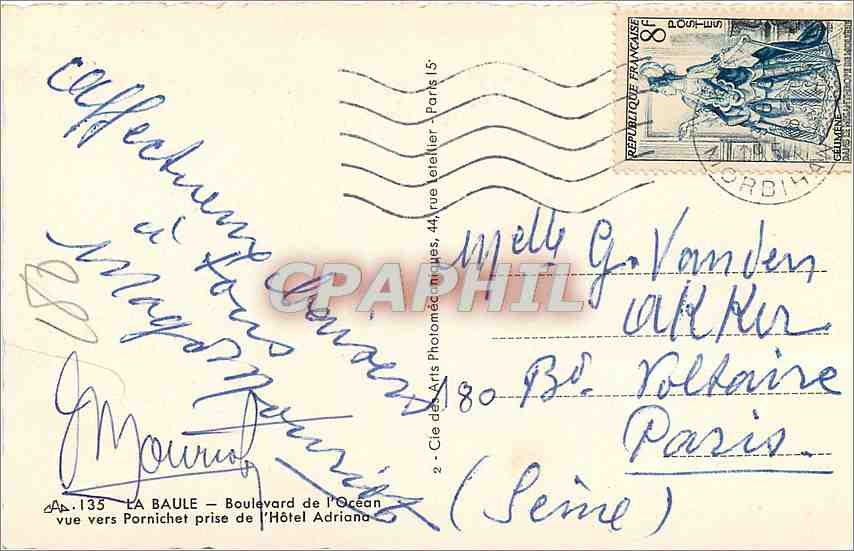 Affectueux baisers
à tous
Magd Mouriot
JMouriot
82
135 LA BAULE — Boulevard de l'Océan
vue vers Pornichet prise de l'Hôtel Adriana
2 - Cie des Arts Photomécaniques, 44, rue Letellier - Paris 15e
REPUBLIQUE FRANÇAISE
8F
POSTES
CELIMENE
MORBIHAN
Melle G. Vanden
akker
180 Bd. Voltaire
Paris.
(Seine)
CPAPHIL